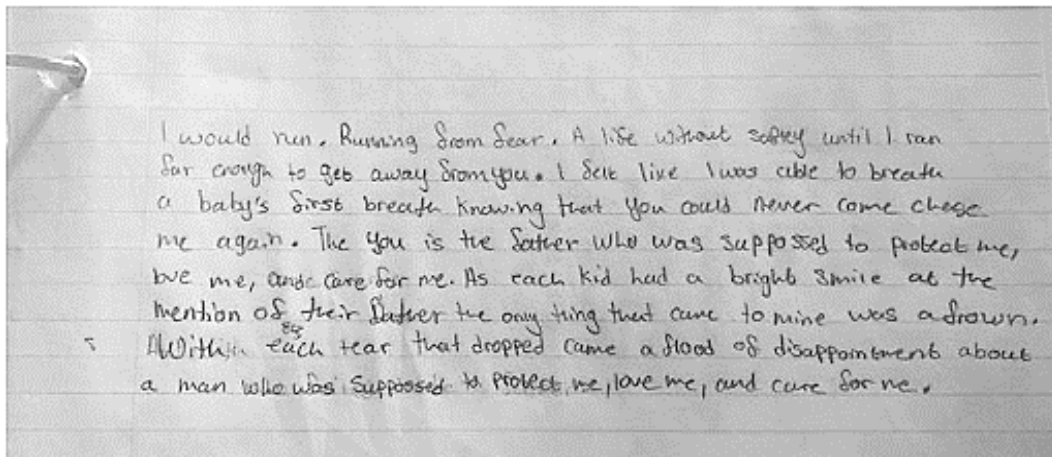 I would run. Running from fear. A life without saftey until I ran
far enough to get away from you. I felt like I was able to breath
a baby's first breath knowing that you could never come chese
me again. The you is the father who was suppossed to protect me,
love me, and care for me. As each kid had a bright smile at the
mention of their father the only thing that came to mine was a frown.
Within each tear that dropped came a flood of disappointment about
a man who was suppossed to protect me, love me, and care for me.